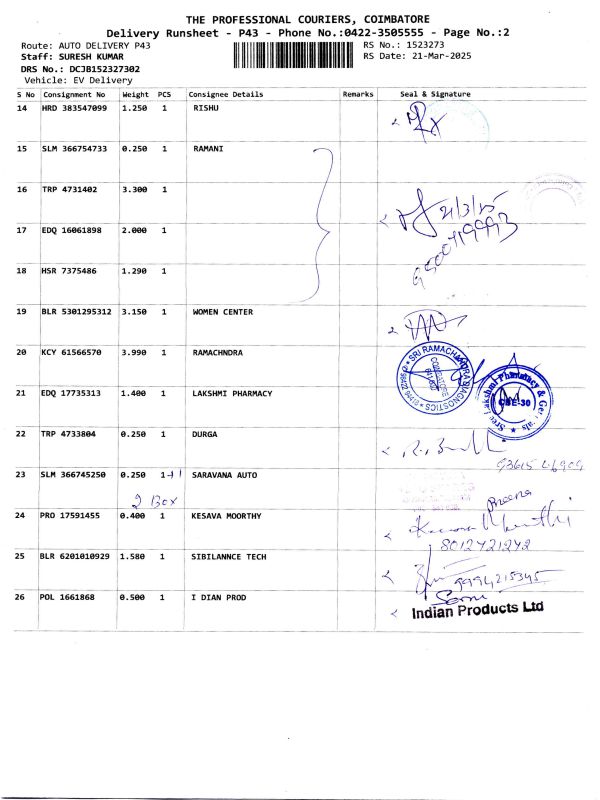 THE PROFESSIONAL COURIERS, COIMBATORE
Delivery Runsheet - P43 - Phone No.:0422-3505555 - Page No.:2
Route: AUTO DELIVERY P43 RS No.: 1523273
Staff: SURESH KUMAR RS Date: 21-Mar-2025
DRS No.: DCJB152327302
Vehicle: EV Delivery
S No Consignment No Weight PCS Consignee Details Remarks Seal & Signature
14 HRD 383547099 1.250 1 RISHU
15 SLM 366754733 0.250 1 RAMANI
16 TRP 4731402 3.300 1
21/3/25
17 EDQ 16061898 2.000 1
18 HSR 7375486 1.290 1
19 BLR 5301295312 3.150 1 WOMEN CENTER
20 KCY 61566570 3.990 1 RAMACHNDRA
SRI RAMACHANDRA DIAGNOSTICS
COIMBATORE
21 EDQ 17735313 1.400 1 LAKSHMI PHARMACY
Sree Lakshmi Pharmacy & Generals
CBE-30
22 TRP 4733804 0.250 1 DURGA
23 SLM 366745250 0.250 1+1 SARAVANA AUTO
2 Box
24 PRO 17591455 0.400 1 KESAVA MOORTHY
8012421242
25 BLR 6201010929 1.580 1 SIBILANNCE TECH
9994215345
26 POL 1661868 0.500 1 I DIAN PROD
Indian Products Ltd